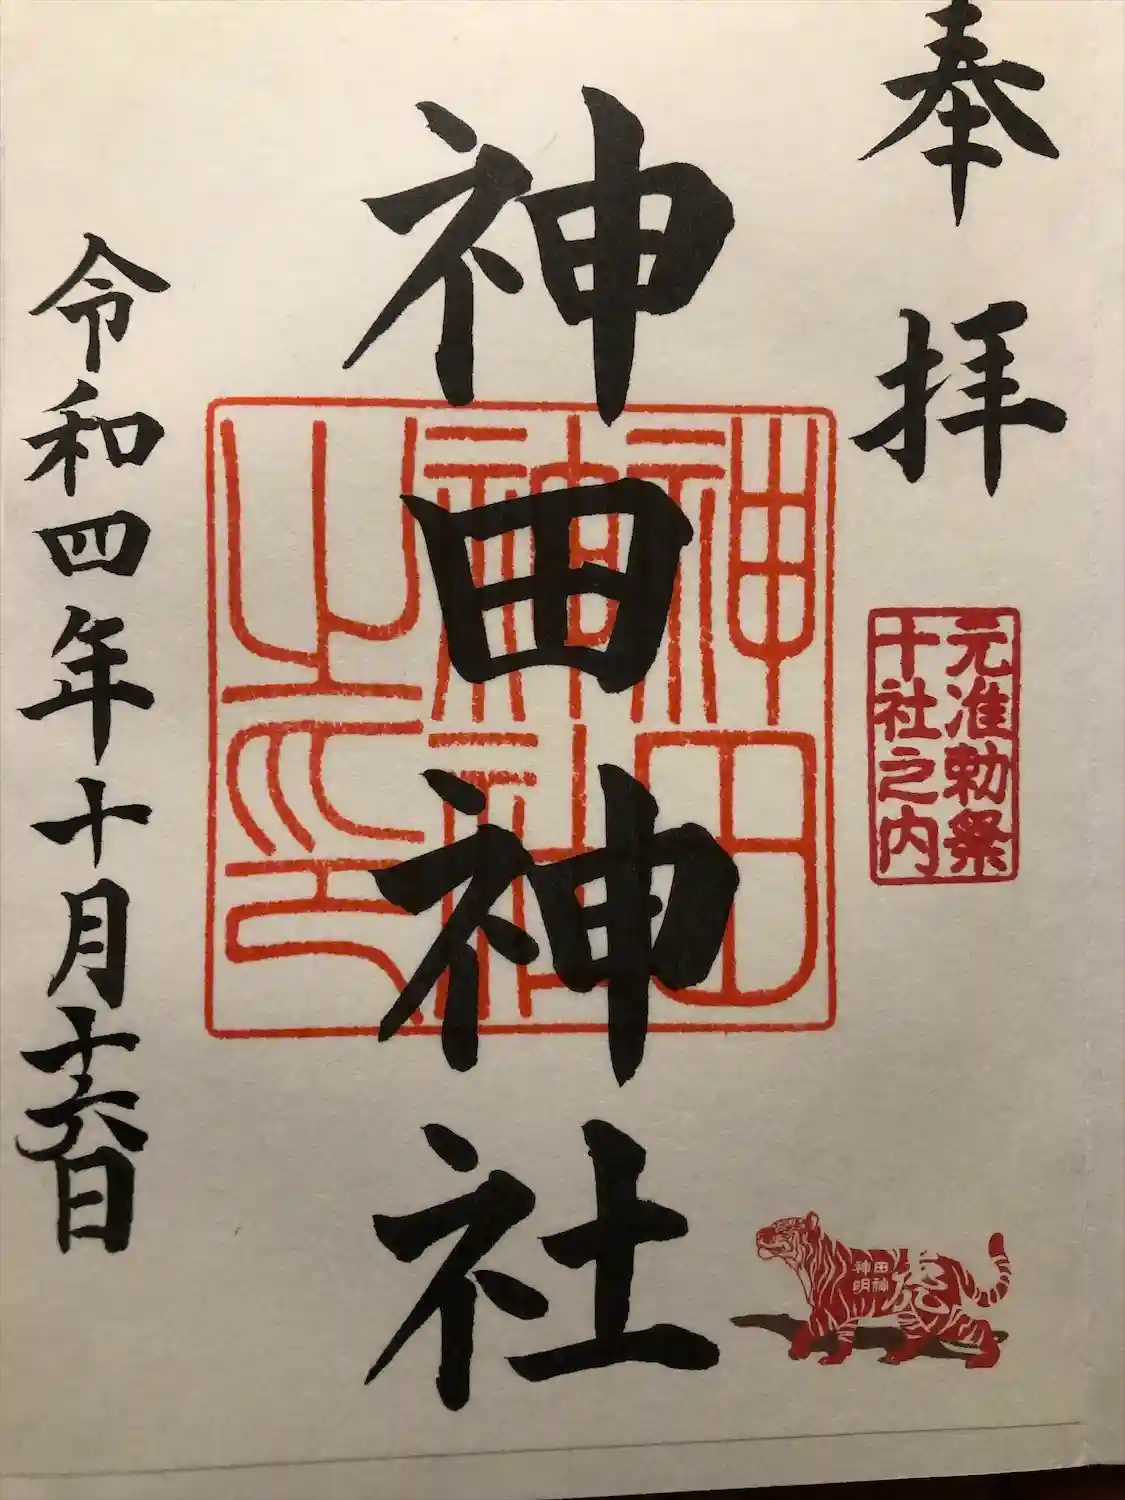 奉拝
元准勅祭
十社之内
神田神社
神田
神社
之印
田神
神明
虎
令和四年十月十六日